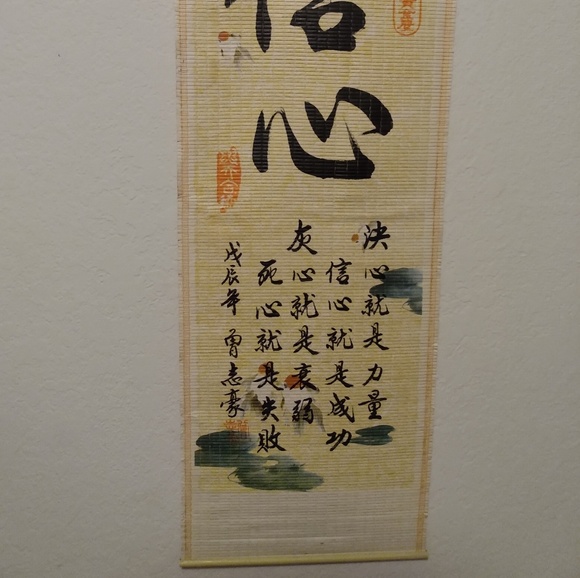 信心
决心就是力量
信心就是成功
灰心就是衰弱
死心就是失败
戊辰年 曾志豪